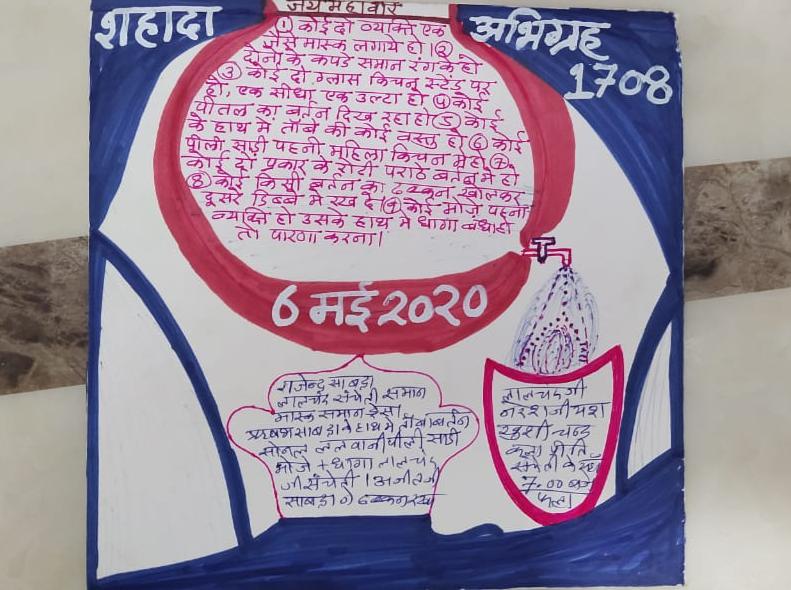 जय महावीर
शहादा
अभिग्रह
1708
① कोई दो व्यक्ति एक
जैसे मास्क लगाये हो। ②
दोनो के कपडे समान रंग के हो
③ कोई दो ग्लास किचन स्टेंड पर
हो, एक सीधा एक उल्टा हो ④ कोई
पीतल का बर्तन दिख रहा हो ⑤ कोई
के हाथ मे तांबे की कोई वस्तु हो ⑥ कोई
पीली साड़ी पहनी महिला किचन मे हो ⑦
कोई दो प्रकार के रोटी पराठे बर्तन मे हो
⑧ कोई किसी बर्तन का ढक्कन खोलकर
दूसरे डिब्बे मे रख दे। ⑨ कोई मोजे पहना
व्यक्ति हो उसके हाथ मे धागा बंधा हो
तो पारणा करना।
6 मई 2020
राजेन्द्र साबड़ा
लालचंद संचेती समान
मास्क समान ड्रेस।
ऋषभ साबड़ा ने हाथ मे तांबा बर्तन
सोनल ललवानी पीली साडी
मोजे + धागा लालचंद
जी संचेती। अजीतजी
साबड़ा ने ढक्कन रखा
लालचंदजी
नरेशजी यश
खुशी चन्द्र
कला प्रीति
संचेती के यहाँ
7.00 बजे
फला।